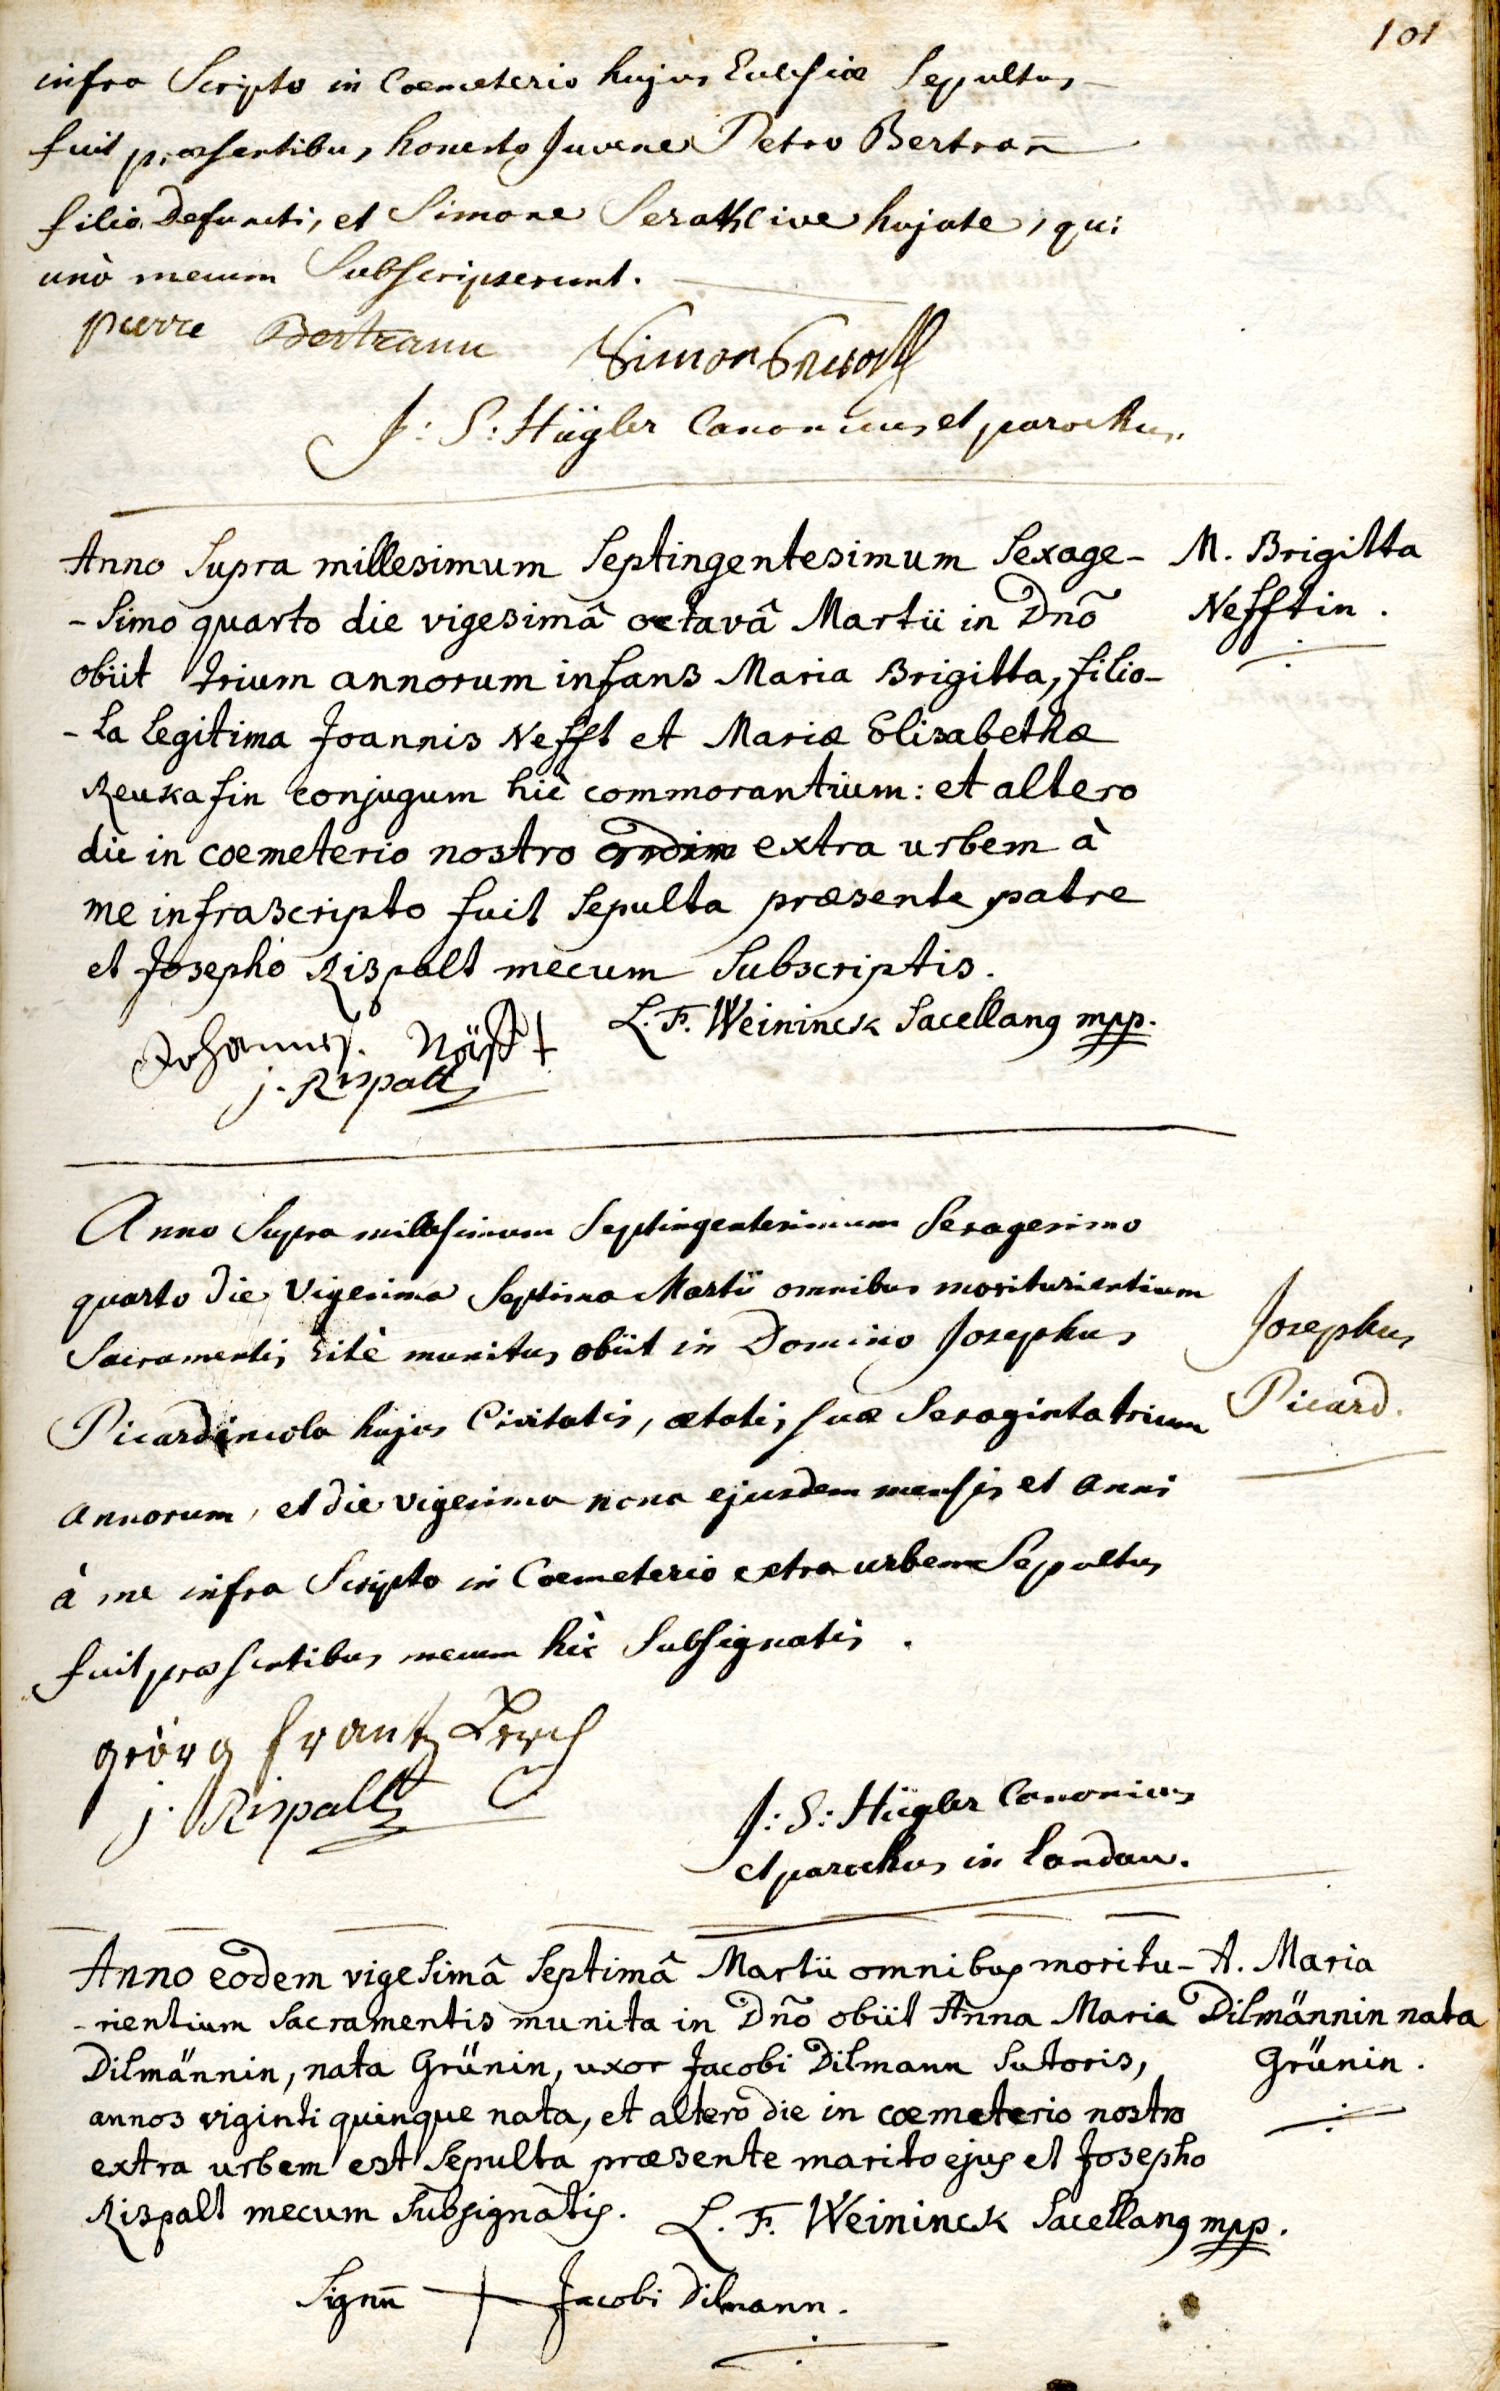 101
infra Scripto in Coemeterio hujus Ecclesiæ Sepultus
fuit præsentibus honesto Juvene Petro Bertran̄
filio Defuncti, et Simone Serath cive hujate, qui
unò mecum Subscripserunt.
pierre Bertrann Simon
J: S: Hügler Canonicus et parochus.
Anno Supra millesimum Septingentesimum Sexage-
-Simo quarto die vigesimâ octavâ Martii in Dnō
obiit trium annorum infans Maria Brigitta, filio-
-la legitima Joannis Nefft et Mariæ Elisabethæ
Reukasin conjugum hìc commorantium: et altero
die in coemeterio nostro extra urbem à
me infrascripto fuit Sepulta præsente patre
et Josepho Rispalt mecum Subscriptis.
M. Brigitta
Nefftin.
L. F. Weininck Sacellanus mpp.
Johannes. Näfft
j. Rispalt
Anno Supra millesimum Septingentesimum Sexagesimo
quarto die Vigesima Septima Martii omnibus moriturientium
Sacramentis ritè munitus obiit in Domino Josephus
Picard incola hujus Civitatis, ætatis suæ Sexaginta trium
annorum, et die vigesima nona ejusdem mensis et anni
à me infra Scripto in Coemeterio extra urbem Sepultus
fuit præsentibus mecum hìc Subsignatis.
Josephus
Picard.
georg frantz Lerch
j. Rispalt
J: S: Hügler Canonicus
et parochus in Landau.
Anno eodem vigesimâ Septimâ Martii omnibus moritu-
-rientium Sacramentis munita in Dnō obiit Anna Maria
Dilmännin, nata Grünin, uxor Jacobi Dilmann Sutoris,
annos viginti quinque nata, et altero die in coemeterio nostro
extra urbem est Sepulta præsente marito ejus et Josepho
Rispalt mecum Subsignatis.
A. Maria
Dilmännin nata
Grünin.
L. F. Weininck Sacellanus mpp.
Signū + Jacobi Dilmann.